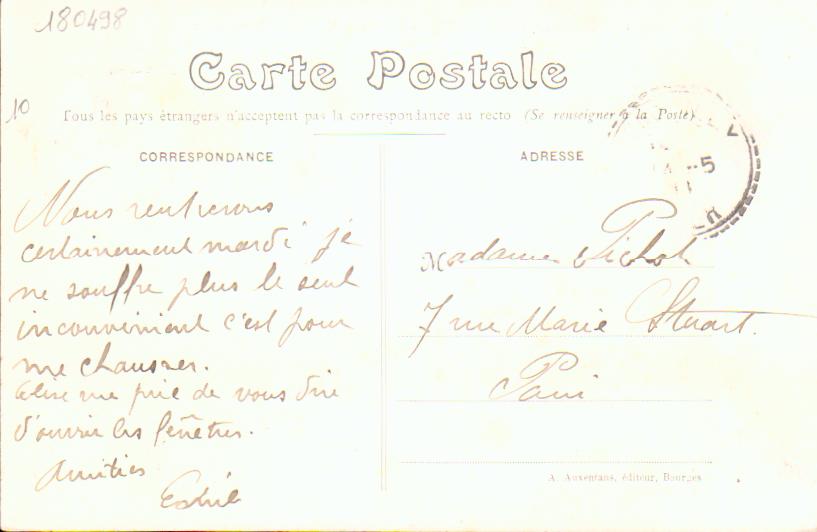 180498
Carte Postale
10
Tous les pays étrangers n'acceptent pas la correspondance au recto (Se renseigner à la Poste)
CORRESPONDANCE
Nous rentrerons
certainement mardi je
ne souffre plus le seul
inconvenient c'est pour
me chausser.
me prie de vous dire
d'ouvrir les fenêtres.
Amitiés
ADRESSE
Madame Pichot
7 rue Marie Stuart.
Paris
A. Auxenfans, éditeur, Bourges